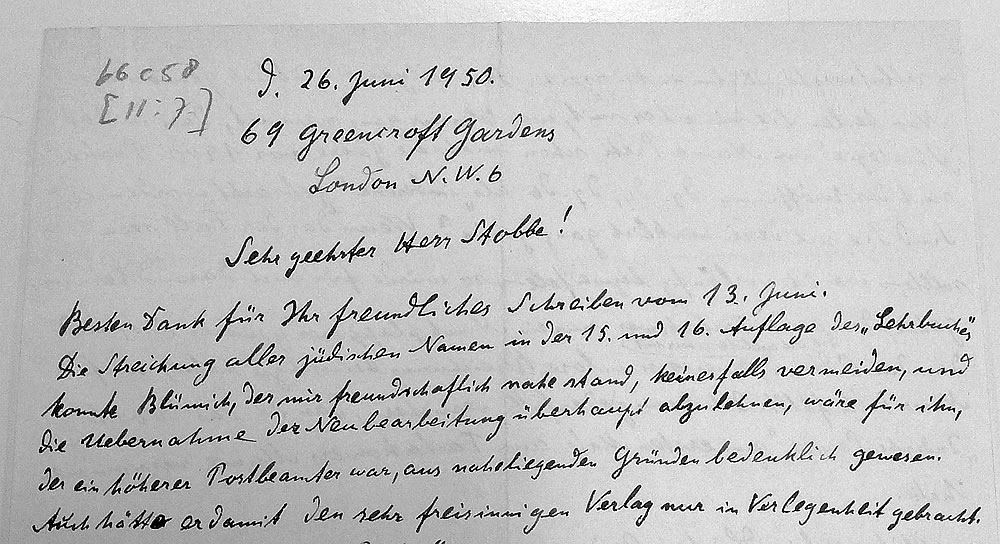 66c58
[11:7]
d. 26. Juni 1950.
69 Greencroft Gardens
London N.W.6
Sehr geehrter Herr Stobbe!
Besten Dank für Ihr freundliches Schreiben vom 13. Juni.
Die Streichung aller jüdischen Namen in der 15. und 16. Auflage des „Lehrbuches"
konnte Blümich, der mir freundschaftlich nahe stand, keinesfalls vermeiden, und
die Uebernahme der Neubearbeitung überhaupt abzulehnen, wäre für ihn,
der ein höherer Postbeamter war, aus naheliegenden Gründen bedenklich gewesen.
Auch hätte er damit den sehr freisinnigen Verlag nur in Verlegenheit gebracht.